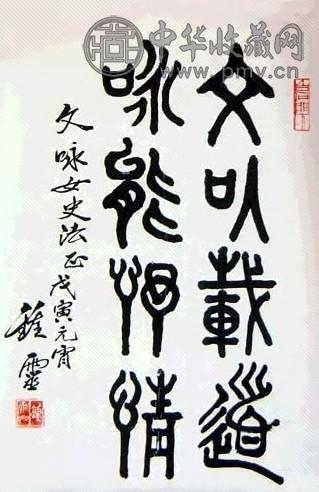 中华收藏网
pmv.cn
文以載道
咏能抒情
文咏女史法正戊寅元宵
鍾靈